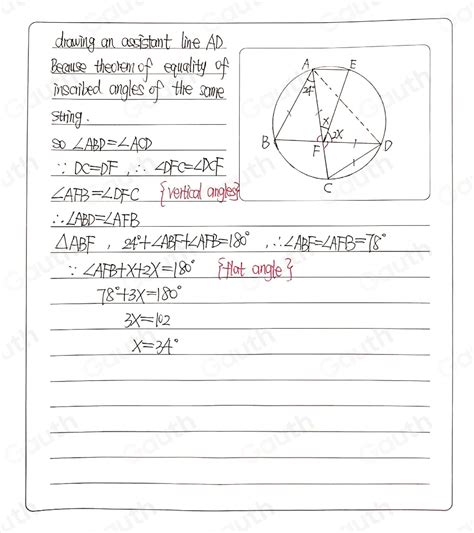 drawing an assistant line AD
Because theorem of equality of
inscribed angles of the same
string.
so ∠ABD=∠ACD
∵ DC=DF, ∴ ∠DFC=∠DCF
∠AFB=∠DFC {vertical angles}
∴ ∠ABD=∠AFB
△ABF, 24°+∠ABF+∠AFB=180°, ∴∠ABF=∠AFB=78°
∵ ∠AFB+X+2X=180° {flat angle}
78°+3X=180°
3X=102
X=34°
A E
24°
X
2X
B F D
C
Gauth